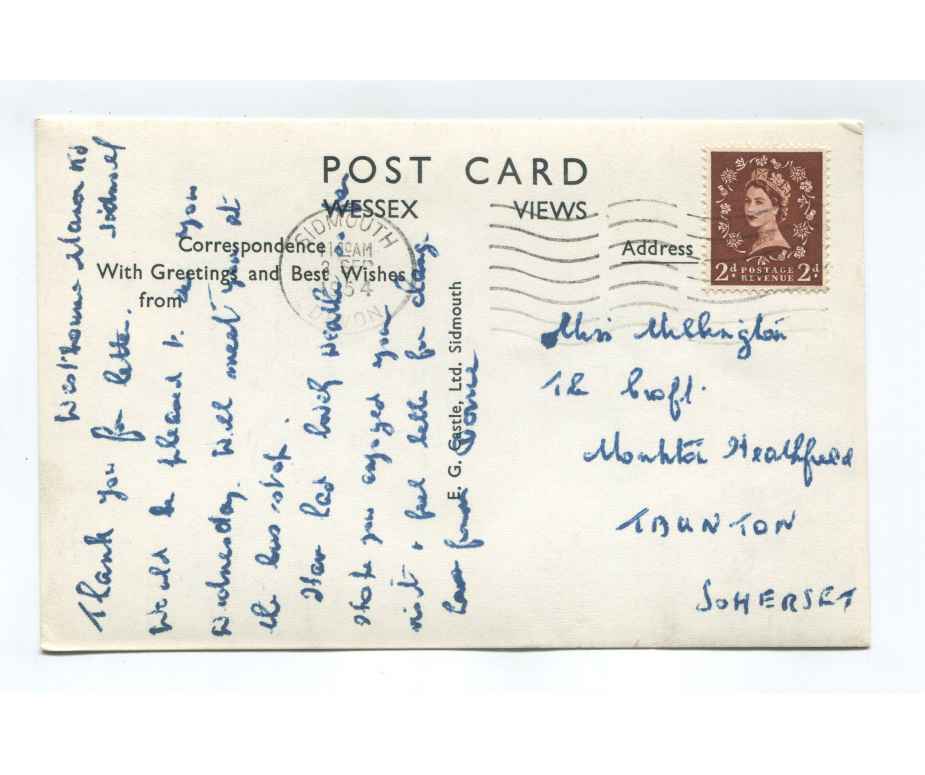 POST CARD
WESSEX VIEWS
Correspondence
With Greetings and Best Wishes
from
Address
2d POSTAGE REVENUE 2d
SIDMOUTH
DEVON
11 AM
SEP
1954
E. G. Castle, Ltd. Sidmouth
Manor Rd
Thank you for letter.
Would be pleased to you
Wednesday. Will meet you at
the bus stop.
Have had lovely weather
Hope you enjoyed your
visit & feel better for change.
Love from
Miss
The Croft.
Monkton Heathfield
TAUNTON
SOMERSET